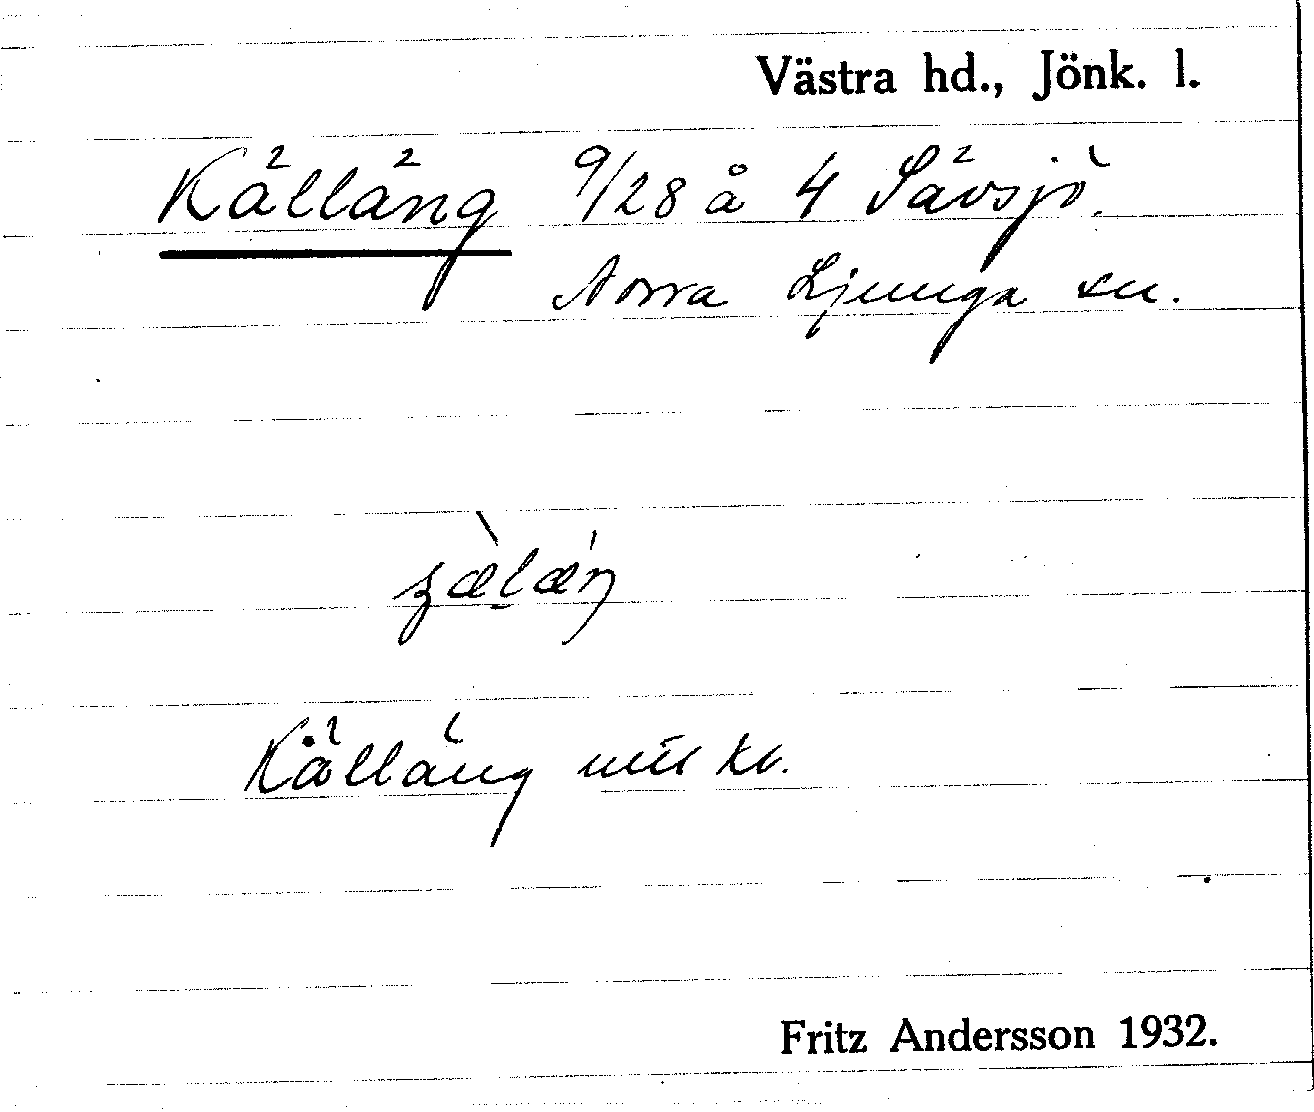 Västra hd., Jönk. l.
Källäng 9/28 å 4 Sävsjö.
Norra Ljunga sn.
Källäng
Fritz Andersson 1932.